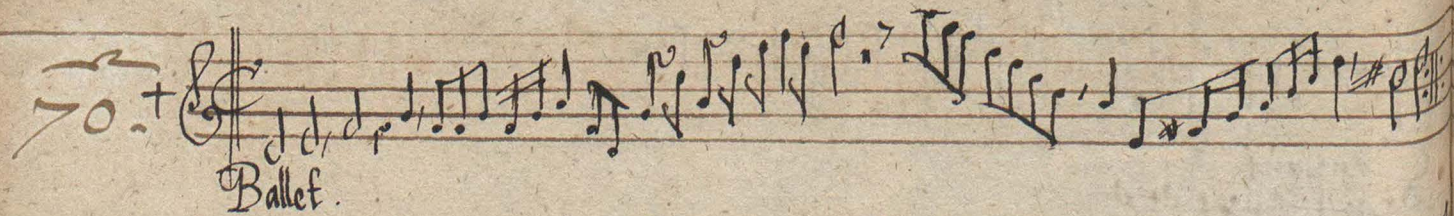 70.
Ballet.